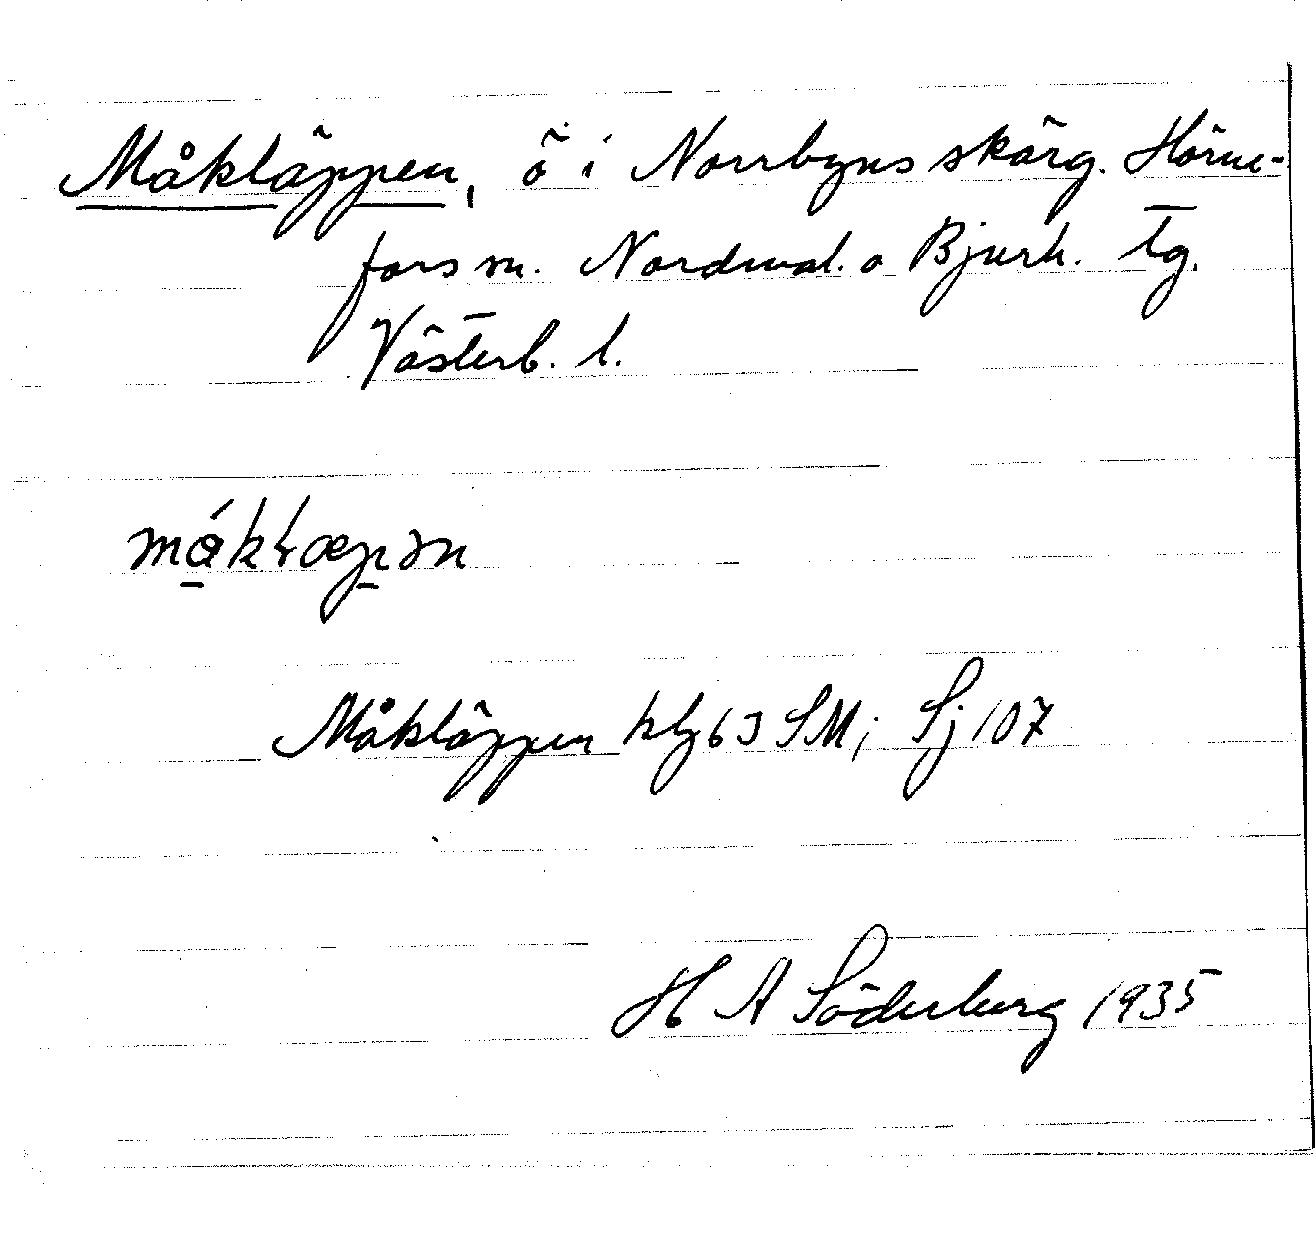 Måkläppen, ö i Norrbyns skärg. Hörne-
fors sn. Nordmal. o Bjurh. tg.
Västerb. l.
Måkläppen 63 SM; Sj 107
H A Söderberg 1935